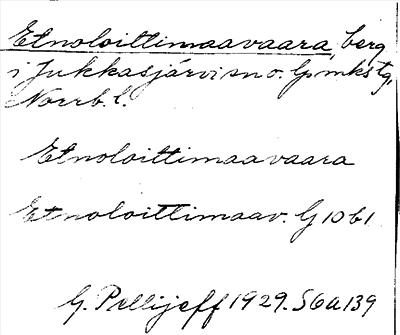 Etnoloittimaavaara, berg
i Jukkasjärvi sn o. lpmkstg,
Norrb. l.
Etnoloittimaavaara
Etnoloittimaav. G 10 b 1
G. Pellijeff 1929. S 6a 139